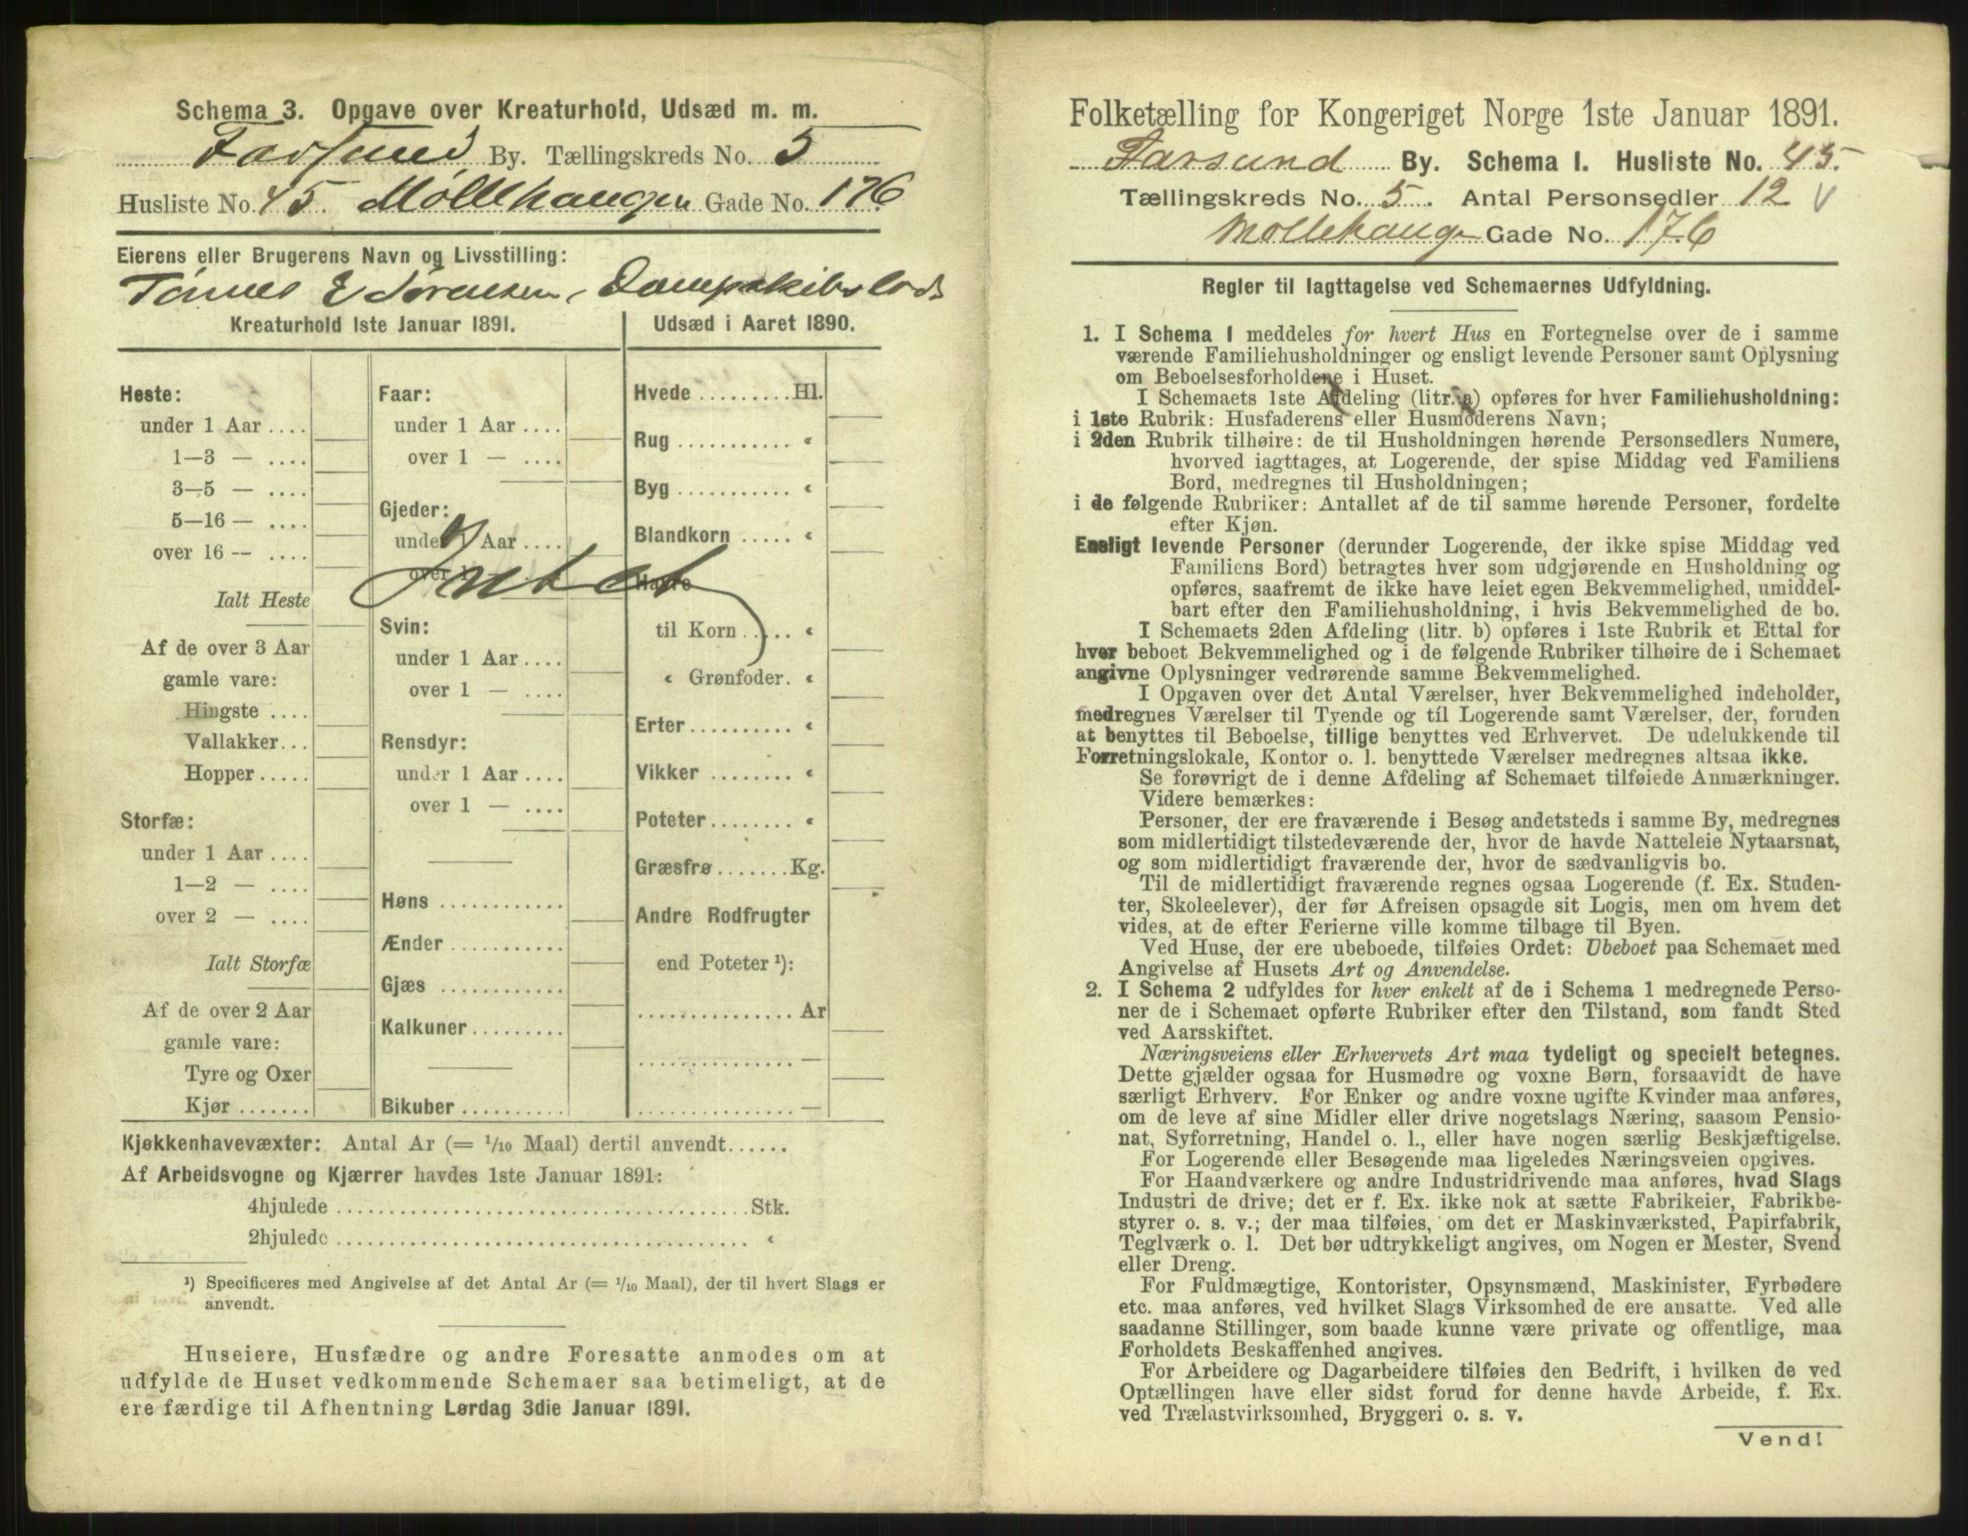 Schema 3. Opgave over Kreaturhold, Udsæd m. m.
Farsund By. Tællingskreds No. 5
Husliste No. 45. Møllehaugen Gade No. 176
Eierens eller Brugerens Navn og Livsstilling:
Tønnes E Sørensen, Dampskibslods
Kreaturhold 1ste Januar 1891.
Heste:
under 1 Aar ....
1—3 — ....
3—5 — ....
5—16 — ....
over 16 — ....
Ialt Heste
Af de over 3 Aar
gamle vare:
Hingste ....
Vallakker...
Hopper.....
Storfæ:
under 1 Aar ....
1—2 — ....
over 2 — ....
Ialt Storfæ
Af de over 2 Aar
gamle vare:
Tyre og Oxer
Kjør .......
Faar:
under 1 Aar ....
over 1 — ....
Gjeder:
under 1 Aar ....
over 1
Intet
Svin:
under 1 Aar ....
over 1 — ....
Rensdyr:
under 1 Aar ....
over 1 — ....
Høns ............
Ænder ...........
Gjæs ............
Kalkuner.........
Bikuber ..........
Udsæd i Aaret 1890.
Hvede .........Hl.
Rug ........... «
Byg ........... «
Blandkorn ..... «
Havre
til Korn ..... «
« Grønfoder. «
Erter .......... «
Vikker ......... «
Poteter........ «
Græsfrø .......Kg.
Andre Rodfrugter
end Poteter ¹):
............... Ar
............... —
............... —
Kjøkkenhavevæxter: Antal Ar (= 1/10 Maal) dertil anvendt......
Af Arbeidsvogne og Kjærrer havdes 1ste Januar 1891:
4hjulede ........................................Stk.
2hjulede ........................................ «
¹) Specificeres med Angivelse af det Antal Ar (= 1/10 Maal), der til hvert Slags er
anvendt.
Huseiere, Husfædre og andre Foresatte anmodes om at
udfylde de Huset vedkommende Schemaer saa betimeligt, at de
ere færdige til Afhentning Lørdag 3die Januar 1891.
Folketælling for Kongeriget Norge 1ste Januar 1891.
Farsund By. Schema I. Husliste No. 45.
Tællingskreds No. 5. Antal Personsedler 12 v
Møllehaugen Gade No. 176
Regler til Iagttagelse ved Schemaernes Udfyldning.
1. I Schema 1 meddeles for hvert Hus en Fortegnelse over de i samme
værende Familiehusholdninger og ensligt levende Personer samt Oplysning
om Beboelsesforholdene i Huset.
I Schemaets 1ste Afdeling (litr. a) opføres for hver Familiehusholdning:
i 1ste Rubrik: Husfaderens eller Husmoderens Navn;
i 2den Rubrik tilhøire: de til Husholdningen hørende Personsedlers Numere,
hvorved iagttages, at Logerende, der spise Middag ved Familiens
Bord, medregnes til Husholdningen;
i de følgende Rubriker: Antallet af de til samme hørende Personer, fordelte
efter Kjøn.
Ensligt levende Personer (derunder Logerende, der ikke spise Middag ved
Familiens Bord) betragtes hver som udgjørende en Husholdning og
opføres, saafremt de ikke have leiet egen Bekvemmelighed, umiddel-
bart efter den Familiehusholdning, i hvis Bekvemmelighed de bo.
I Schemaets 2den Afdeling (litr. b) opføres i 1ste Rubrik et Ettal for
hver beboet Bekvemmelighed og i de følgende Rubriker tilhøire de i Schemaet
angivne Oplysninger vedrørende samme Bekvemmelighed.
I Opgaven over det Antal Værelser, hver Bekvemmelighed indeholder,
medregnes Værelser til Tyende og til Logerende samt Værelser, der, foruden
at benyttes til Beboelse, tillige benyttes ved Erhvervet. De udelukkende til
Forretningslokale, Kontor o. l. benyttede Værelser medregnes altsaa ikke.
Se forøvrigt de i denne Afdeling af Schemaet tilføiede Anmærkninger.
Videre bemærkes:
Personer, der ere fraværende i Besøg andetsteds i samme By, medregnes
som midlertidigt tilstedeværende der, hvor de havde Natteleie Nytaarsnat,
og som midlertidigt fraværende der, hvor de sædvanligvis bo.
Til de midlertidigt fraværende regnes ogsaa Logerende (f. Ex. Studen-
ter, Skoleelever), der før Afreisen opsagde sit Logis, men om hvem det
vides, at de efter Ferierne ville komme tilbage til Byen.
Ved Huse, der ere ubeboede, tilføies Ordet: Ubeboet paa Schemaet med
Angivelse af Husets Art og Anvendelse.
2. I Schema 2 udfyldes for hver enkelt af de i Schema 1 medregnede Perso-
ner de i Schemaet opførte Rubriker efter den Tilstand, som fandt Sted
ved Aarsskiftet.
Næringsveiens eller Erhvervets Art maa tydeligt og specielt betegnes.
Dette gjælder ogsaa for Husmødre og voxne Børn, forsaavidt de have
særligt Erhverv. For Enker og andre voxne ugifte Kvinder maa anføres,
om de leve af sine Midler eller drive nogetslags Næring, saasom Pensio-
nat, Syforretning, Handel o. l., eller have nogen særlig Beskjæftigelse.
For Logerende eller Besøgende maa ligeledes Næringsveien opgives.
For Haandværkere og andre Industridrivende maa anføres, hvad Slags
Industri de drive; det er f. Ex. ikke nok at sætte Fabrikeier, Fabrikbe-
styrer o. s. v.; der maa tilføies, om det er Maskinværksted, Papirfabrik,
Teglværk o. l. Det bør udtrykkeligt angives, om Nogen er Mester, Svend
eller Dreng.
For Fuldmægtige, Kontorister, Opsynsmænd, Maskinister, Fyrbødere
etc. maa anføres, ved hvilket Slags Virksomhed de ere ansatte. Ved alle
saadanne Stillinger, som baade kunne være private og offentlige, maa
Forholdets Beskaffenhed angives.
For Arbeidere og Dagarbeidere tilføies den Bedrift, i hvilken de ved
Optællingen have eller sidst forud for denne havde Arbeide, f. Ex.
ved Trælastvirksomhed, Bryggeri o. s. v.
Vend!